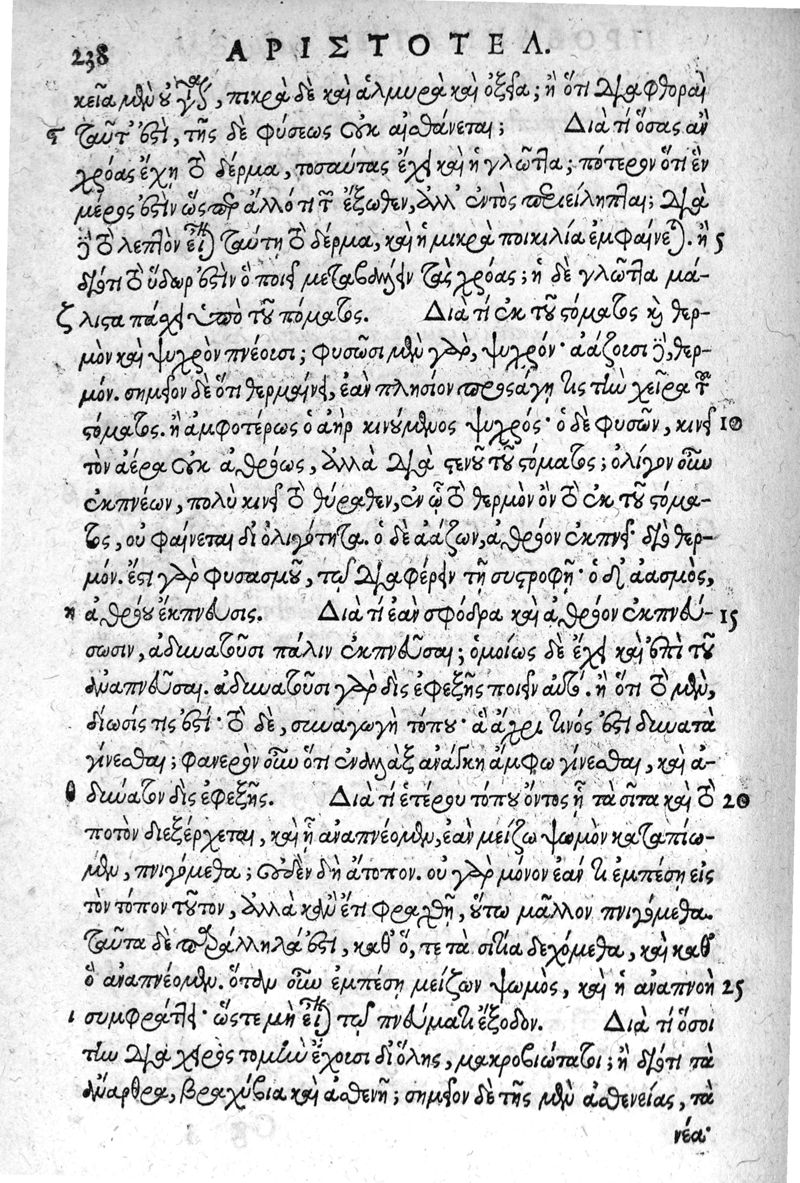 238 ΑΡΙΣΤΟΤΕΛ.
κεῖα μὲν οὐδὲν, πικρὰ δὲ καὶ ἁλμυρὰ καὶ ὀξεῖα; ἢ ὅτι διαφθοραὶ
ϛ ταῦτ' ἐστὶ, τῆς δὲ φύσεως οὐκ αἰσθάνεται; Διὰ τί ὅσας ἂν
χρόας ἔχῃ τὸ δέρμα, τοσαύτας ἔχει καὶ ἡ γλῶττα; πότερον ὅτι ἓν
μέρος ἐστὶν ὥσπερ ἄλλό τι τῶν ἔξωθεν, ἀλλ' ἐντὸς περιείληπται; διὰ
δὲ τὸ λεπτὸν εἶναι ταύτῃ τὸ δέρμα, καὶ ἡ μικρὰ ποικιλία ἐμφαίνεται. ἢ 5
διότι τὸ ὕδωρ ἐστὶν ὃ ποιεῖ μεταβάλλειν τὰς χρόας; ἡ δὲ γλῶττα μά-
ζ λιστα πάσχει ὑπὸ τοῦ πόματος. Διὰ τί ἐκ τοῦ στόματος καὶ θερ-
μὸν καὶ ψυχρὸν πνέουσι; φυσῶσι μὲν γὰρ, ψυχρόν· ἀάζουσι δὲ, θερ-
μόν. σημεῖον δὲ ὅτι θερμαίνει, ἐὰν πλησίον προσάγῃ τις τὴν χεῖρα τοῦ
στόματος. ἢ ἀμφοτέρως ὁ ἀὴρ κινούμενος ψυχρός· ὁ δὲ φυσῶν, κινεῖ 10
τὸν ἀέρα οὐκ ἀθρόως, ἀλλὰ διὰ στενοῦ τοῦ στόματος; ὀλίγον οὖν
ἐκπνέων, πολὺ κινεῖ τὸ θύραθεν, ἐν ᾧ τὸ θερμὸν ὂν τὸ ἐκ τοῦ στόμα-
τος, οὐ φαίνεται δι' ὀλιγότητα. ὁ δὲ ἀάζων, ἀθρόον ἐκπνεῖ· διὸ θερ-
μόν. ἔστι γὰρ φυσασμοῦ, τῷ διαφέρειν τῇ συστροφῇ· ὁ δ' ἀασμὸς,
η ἀθρόου ἔκπνευσις. Διὰ τί ἐὰν σφόδρα καὶ ἀθρόον ἐκπνεύ- 15
σωσιν, ἀδυνατοῦσι πάλιν ἐκπνεῦσαι; ὁμοίως δὲ ἔχει καὶ ἐπὶ τοῦ
ἀναπνεῦσαι. ἀδυνατοῦσι γὰρ δὶς ἐφεξῆς ποιεῖν αὐτό. ἢ ὅτι τὸ μὲν,
δίωσίς τίς ἐστί· τὸ δὲ, συναγωγὴ τόπου· ἃ ἄχρι τινός ἐστι δυνατὰ
γίνεσθαι; φανερὸν οὖν ὅτι ἐναλλὰξ ἀνάγκη ἄμφω γίνεσθαι, καὶ ἀ-
θ δύνατον δὶς ἐφεξῆς. Διὰ τί ἑτέρου τόπου ὄντος ᾗ τὰ σῖτα καὶ τὸ 20
ποτὸν διεξέρχεται, καὶ ᾗ ἀναπνέομεν, ἐὰν μείζω ψωμὸν καταπίω-
μεν, πνιγόμεθα; οὐδὲν δὴ ἄτοπον. οὐ γὰρ μόνον ἐάν τι ἐμπέσῃ εἰς
τὸν τόπον τοῦτον, ἀλλὰ κἂν ἔτι φραχθῇ, οὕτω μᾶλλον πνιγόμεθα.
ταῦτα δὲ παράλληλά ἐστι, καθ' ὅ, τε τὰ σιτία δεχόμεθα, καὶ καθ'
ὃ ἀναπνέομεν. ὅταν οὖν ἐμπέσῃ μείζων ψωμὸς, καὶ ἡ ἀναπνοὴ 25
ι συμφράττει· ὥστε μὴ εἶναι τῷ πνεύματι ἔξοδον. Διὰ τί ὅσοι
τὴν διὰ χειρὸς τομὴν ἔχουσι δι' ὅλης, μακροβιώτατοι; ἢ διότι τὰ
ἄναρθρα, βραχύβια καὶ ἀσθενῆ; σημεῖον δὲ τῆς μὲν ἀσθενείας, τὰ
νέα·